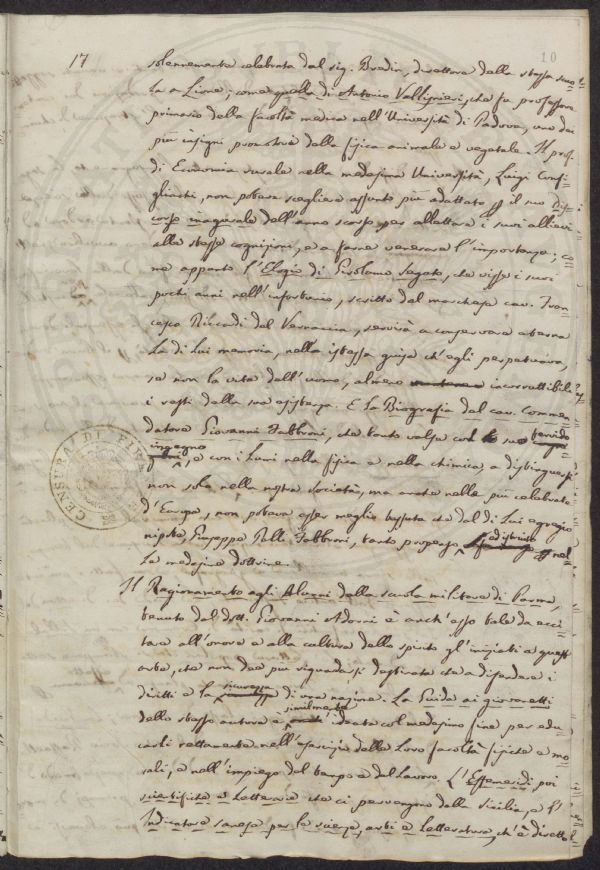 17
10
solennemente celebrata dal sig. Bredin, direttore della stessa scuo=
la a Lione; come quella di Antonio Vallisnieri, che fu professore
primario della facoltà medica nell'Università di Padova, uno dei
più insigni promotori della fisica animale e vegetale. Il prof.
di Economia rurale nella medesima Università, Luigi Confi=
gliachi, non poteva scegliere assunto più adattato il suo Dis=
corso inaugurale dell'anno scorso per allettare i suoi allievi
alle stesse cognizioni, e a farne venerare l'importanza; co=
me appunto l'Elogio di Girolamo Segato, che visse i suoi
pochi anni nell'infortunio, scritto dal marchese cav. Fran=
cesco Riccardi del Vernaccia, servirà a conservare eterna
la di lui memoria, nella istessa guisa ch'egli perpetuava,
se non la vita dell'uomo, almeno incorruttibili
i resti della sua esistenza. E la Biografia del cav. Commen=
datore Giovanni Fabbroni, che tanto valse col suo fervido
ingegno
, e con i lumi nella fisica e nella chimica, a distinguersi
non solo nella nostra Società, ma anche nelle più celebrate
d'Europa, non poteva esser meglio tessuta che dal di lui egregio
nipote Giuseppe Pelli Fabbroni, tanto propenso ed istruito nel=
la medesima dottrina.
Il Ragionamento agli Alunni della scuola militare di Parma,
tenuto dal dott. Giovanni Adorni è anch'esso tale da ecci=
tare all'onore e alla coltura dello spirito gl'iniziati a quest'
arte, che non dee più riguardarsi destinata che a difendere i
diritti e la sicurezza di una nazione. La Guida ai giovanetti
dello stesso autore è similmente ideata col medesimo fine per edu=
carli rettamente nell'esercizio delle loro facoltà fisiche e mo=
rali, e nell'impiego del tempo e del lavoro. L'Effemeridi poi
scientifiche e letterarie che ci pervengono dalla Sicilia, e l'
Indicatore sanese per le scienze, arti e letteratura, ch'è diretto